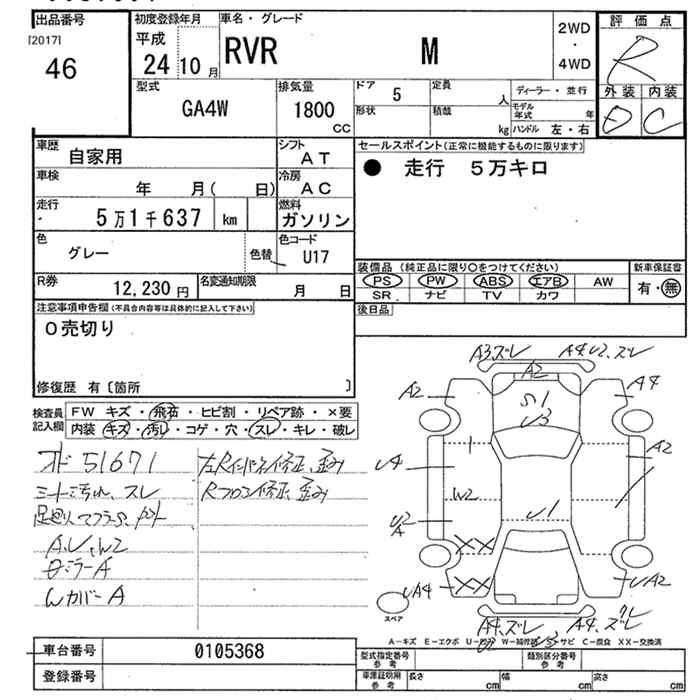 出品番号
[2017]
46
初度登録年月
平成
24 10 月
車名・グレード
RVR M
2WD
・
4WD
評価点
R
外装 内装
D C
型式
GA4W
排気量
1800
CC
ドア 5
定員
人
形状
積載
kg
ディーラー・並行
モデル
年式 年
ハンドル 左・右
車歴
自家用
シフト
AT
車検
年 月( 日)
冷房
AC
走行
5万1千637 km
燃料
ガソリン
色
グレー
色替
色コード
U17
R券
12,230 円
名変通知期限
月 日
セールスポイント(正常に機能するものに限ります)
● 走行 5万キロ
装備品 (純正品に限り〇をつけてください)
PS PW ABS エアB AW
SR ナビ TV カワ
新車保証書
有・無
後日品
注意事項申告欄(不具合内容等は具体的に記入して下さい)
O売切り
修復歴 有〔箇所 〕
検査員
記入欄
FW キズ・飛石・ヒビ割・リペア跡・×要
内装 キズ・汚レ・コゲ・穴・スレ・キレ・破レ
オド 51671
シート汚れ、スレ
A、U、W2
ミラーA
カバーA
左Rインパネ修正、歪み
Rフロア修正、歪み
A3.ズレ
A4.U2.ズレ
A2
A2
A4
S1
U3
1
A2
U4
W2
U2
A
U1
XX
XX
UA4
UA2
スペア
A4.ズレ
A4.ズレ
A-キズ E-エクボ U-凹 W-補修跡 S-サビ C-腐食 XX-交換済
車台番号
0105368
登録番号
型式指定番号
参考
類別区分番号
参考
車庫証明用
参考
長さ cm
幅 cm
高さ cm